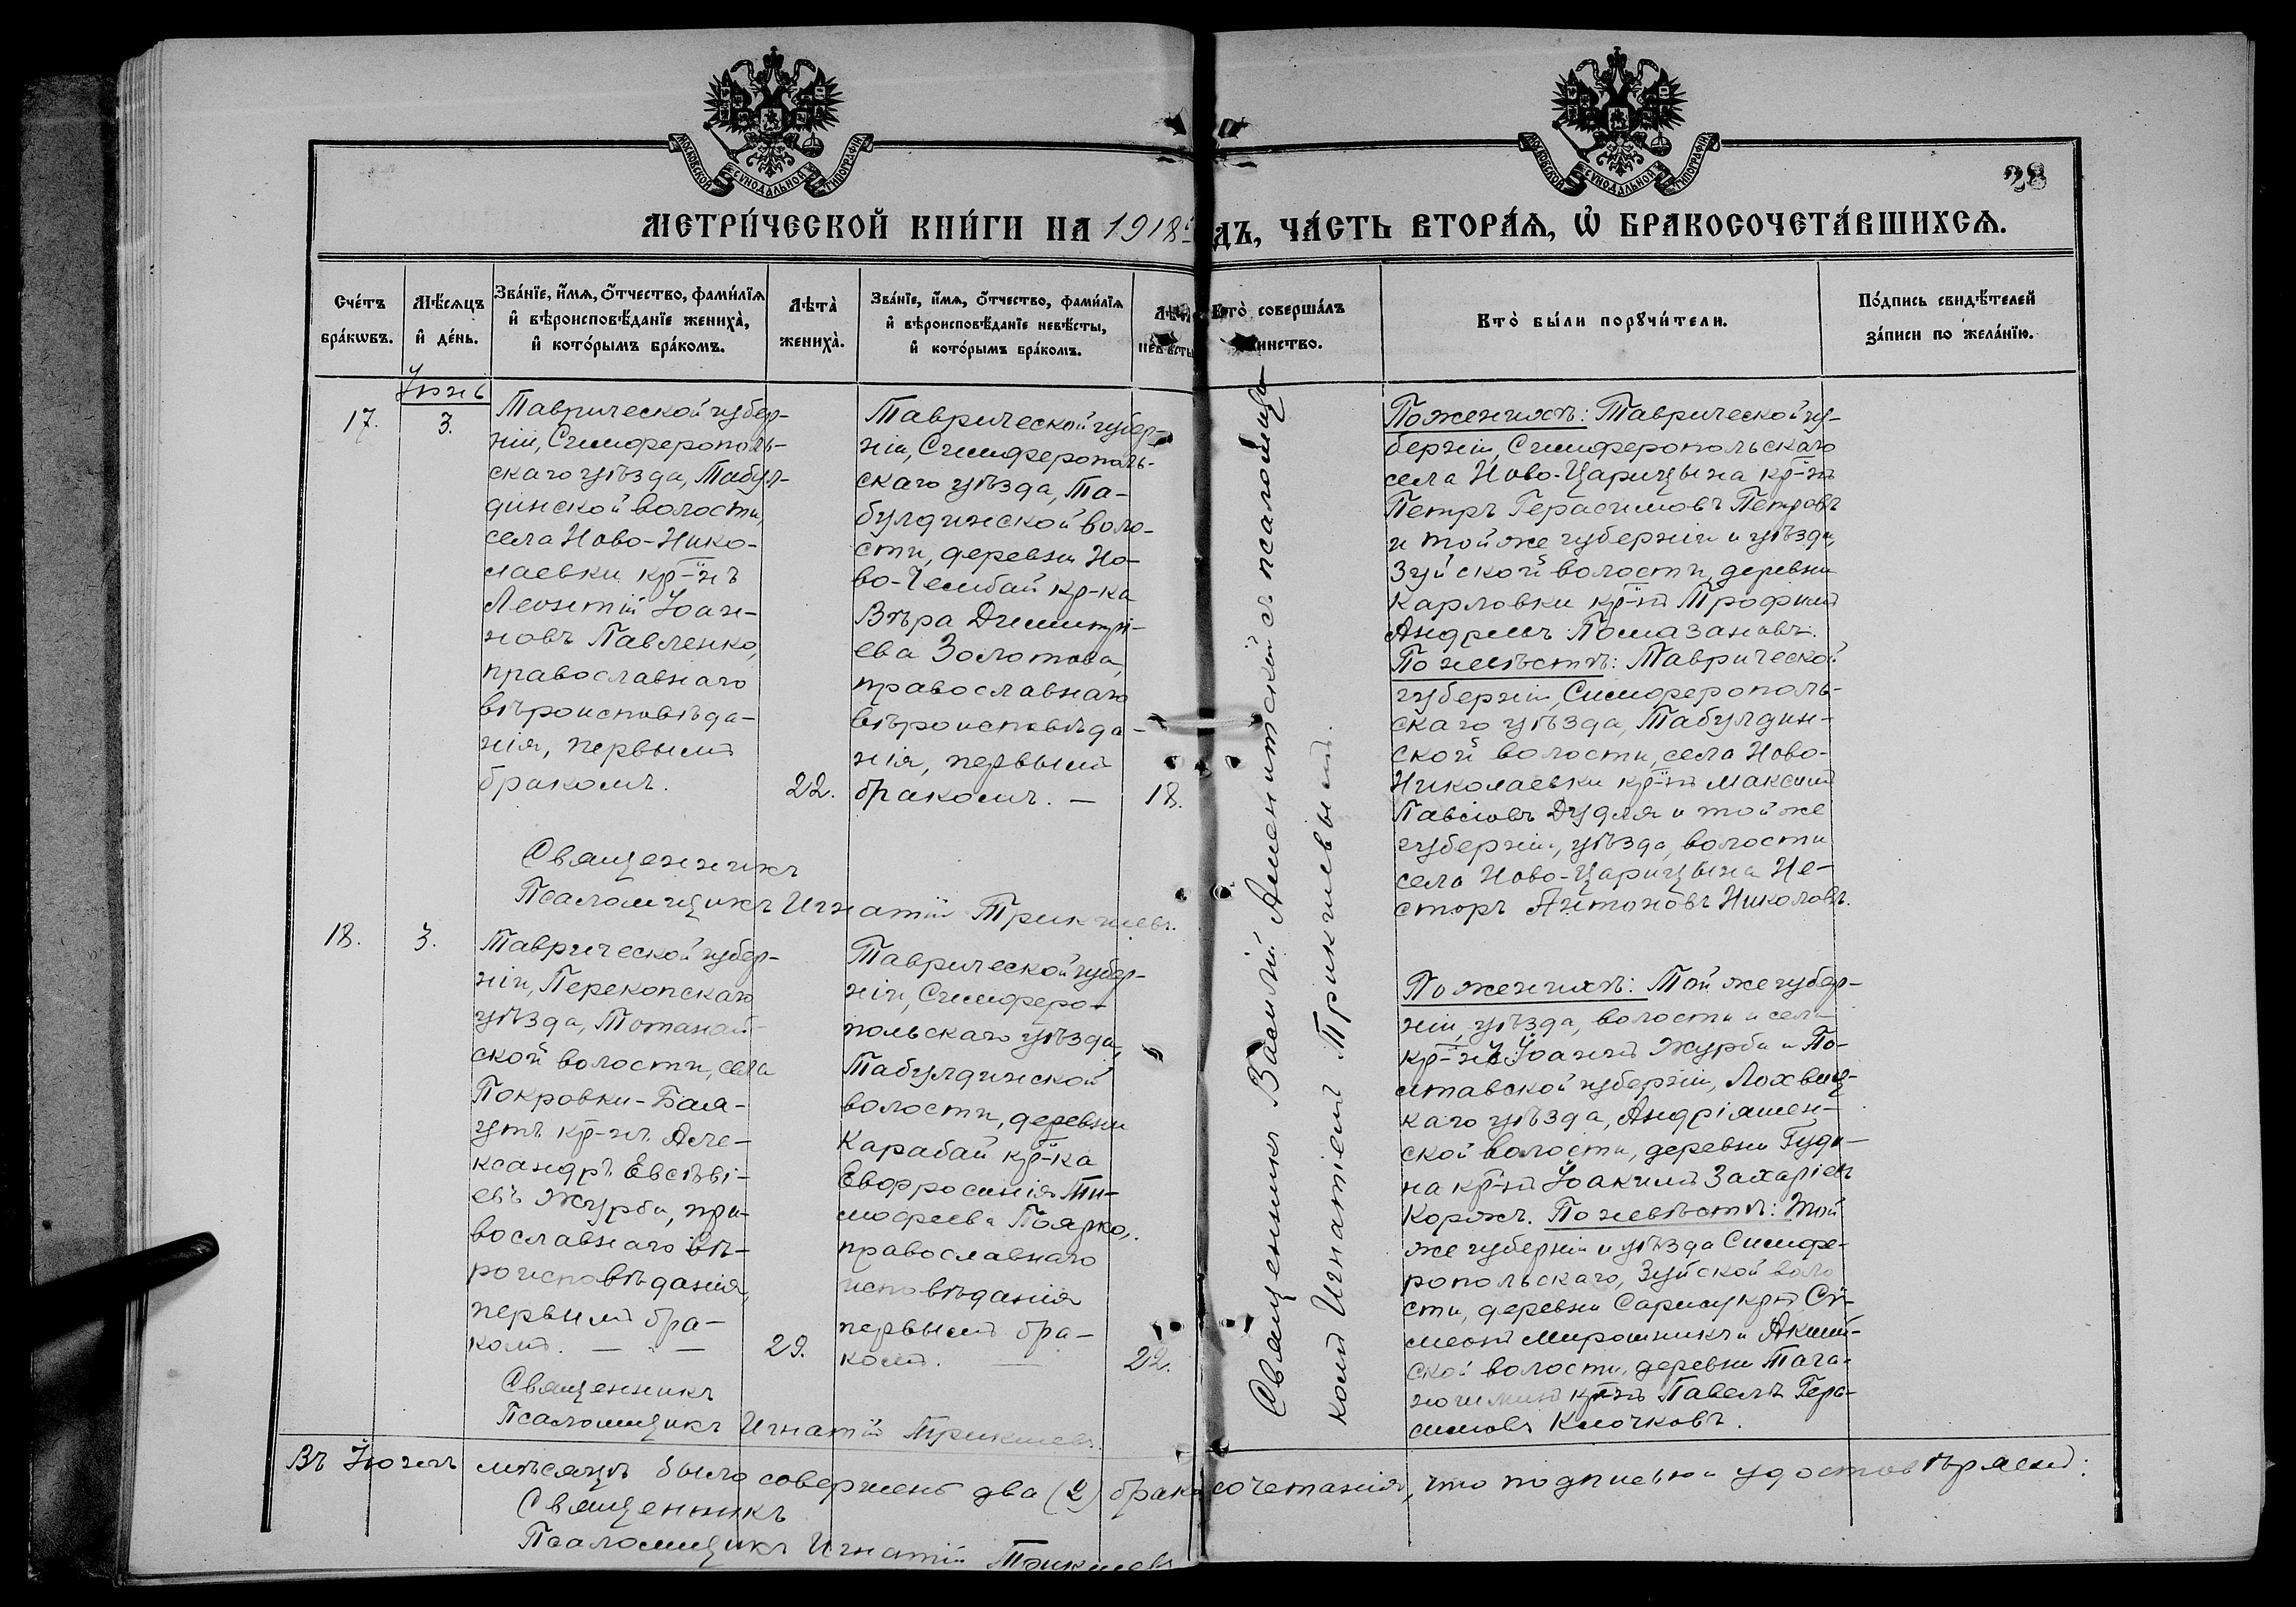 МОСКОВСКОЙ СѴНОДАЛЬНОЙ ТИПОГРАФІИ
МОСКОВСКОЙ СѴНОДАЛЬНОЙ ТИПОГРАФІИ
28
МЕТРИ́ЧЕСКОЙ КНИ́ГИ НА 1918 ДЪ, ЧА́СТЬ ВТОРА́Я, Ѡ҆ БРАКОСОЧЕТА́ВШИХСѦ.
Сче́тъ
бра́кѡвъ.
Мѣ́сяцъ
и҆ де́нь.
Зва́нїе, и҆́мѧ, ѻ҆́тчество, фами́лїѧ
и҆ вѣроисповѣ́данїе жениха̀,
и҆ кото́рымъ бра́комъ.
Лѣта̀
жениха̀.
Зва́нїе, и҆́мѧ, ѻ҆́тчество, фами́лїѧ
и҆ вѣроисповѣ́данїе невѣ́сты,
и҆ кото́рымъ бра́комъ.
Лѣта
невѣсты
Кто̀ соверша́лъ
инство.
Кто̀ бы́ли порꙋчи́тели.
По́дпись свидѣ́телей
за́писи по жела́нїю.
Іюнь
17.
3.
Таврической губер-
ніи, Симферополь-
скаго уѣзда, Табул-
динской волости,
села Ново-Нико-
лаевки кр-нъ
Леонтій Іоан-
новъ Павленко,
православнаго
вѣроисповѣда-
нія, первымъ
бракомъ.
22.
Таврической губер-
ніи, Симферополь-
скаго уѣзда, Та-
булдинской воло-
сти, деревни Но-
во-Чембай кр-ка
Вѣра Димитрі-
ева Золотова,
православнаго
вѣроисповѣда-
нія, первымъ
бракомъ. —
18.
Священникъ
Псаломщикъ Игнатій Трикашевъ.
Священникъ Василій Аменитскій съ псаломщи-
комъ Игнатіемъ
По женихѣ: Таврической гу-
берніи, Симферопольскаго
села Ново-Царицына кр-нъ
Петръ Герасимовъ Петровъ
и той же губерніи и уѣзда,
Зуйской волости, деревни
Карловки кр-нъ Трофимъ
Андреевъ Помазановъ.
По невѣстѣ: Таврической
губерніи, Симферополь-
скаго уѣзда, Табулдин-
ской волости, села Ново-
Николаевки кр-нъ Максимъ
Павловъ Дудля и той же
губерніи, уѣзда, волости
села Ново-Царицына Не-
сторъ Антоновъ Николовъ.
18.
3.
Таврической губер-
ніи, Перекопскаго
уѣзда, Тотанай-
ской волости, села
Покровки-Бая-
утъ кр-нъ Але-
ксандръ Евсѣві-
евъ Журба, пра-
вославнаго вѣ-
роисповѣданія,
первымъ бра-
комъ. — —
29.
Таврической губер-
ніи, Симферо-
польскаго уѣзда,
Табулдинской
волости, деревни
Карабай кр-ка
Евфросинія Ти-
мофеева Поярко,
православнаго
исповѣданія
первымъ бра-
комъ. —
22.
Священникъ
Псаломщикъ Игнатій
По женихѣ: Той же губер-
ніи, уѣзда, волости и села
кр-нъ Іоаннъ Журба и По-
лтавской губерніи, Лохвиц-
каго уѣзда, Андріяшев-
ской волости, деревни Гуди-
на кр-нъ Іоакимъ Захаріевъ
Коржъ. По невѣстѣ: той
же губерніи и уѣзда Симфе-
ропольскаго, Зуйской воло
сти, деревни кр-нъ Си-
меонъ Мирошникъ и
ской волости, деревни
кр-нъ Павелъ Гера-
симовъ Клочковъ.
Въ Іюнѣ мѣсяцѣ было совершено два (2) бракосочетанія, что подписью и удостовѣряемъ:
Священникъ
Псаломщикъ Игнатій